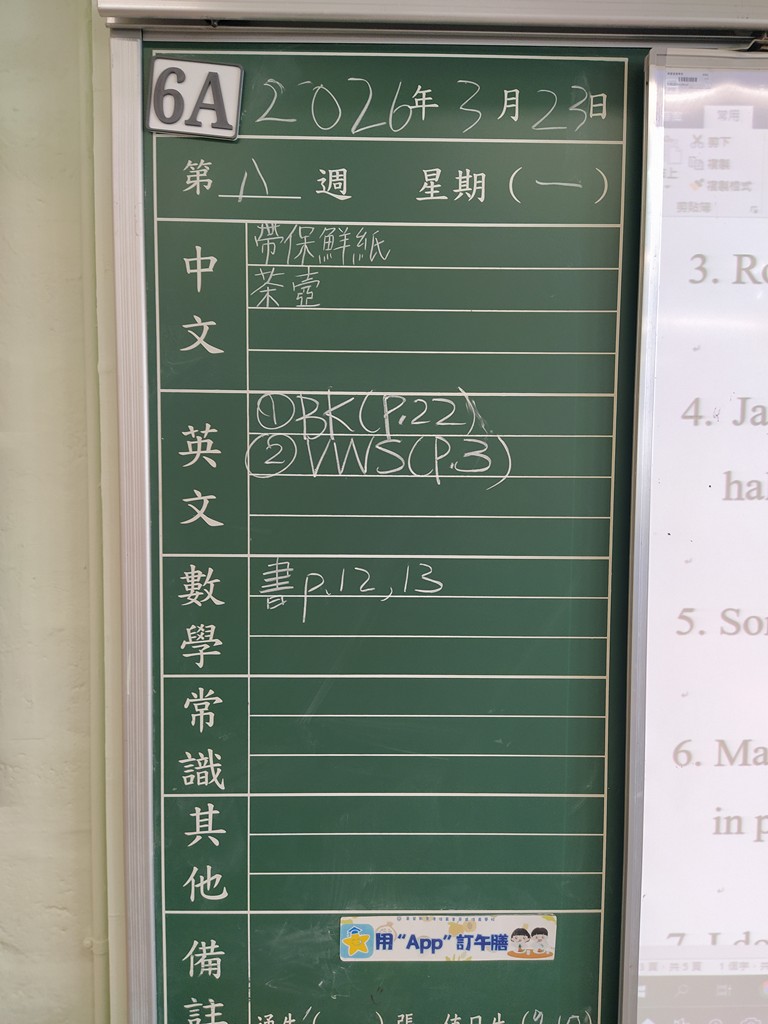 6A
2026年3月23日
第八週 星期(一)
中文
帶保鮮紙
茶壺
英文
①BK(P.22)
②VWS(P.3)
數學
書p.12,13
常識
其他
備註
用“App”訂午膳
常用
剪下
複製
複製格式
剪貼簿
3. Ro
4. Ja
hal
5. Son
6. Ma
in p
7. I do